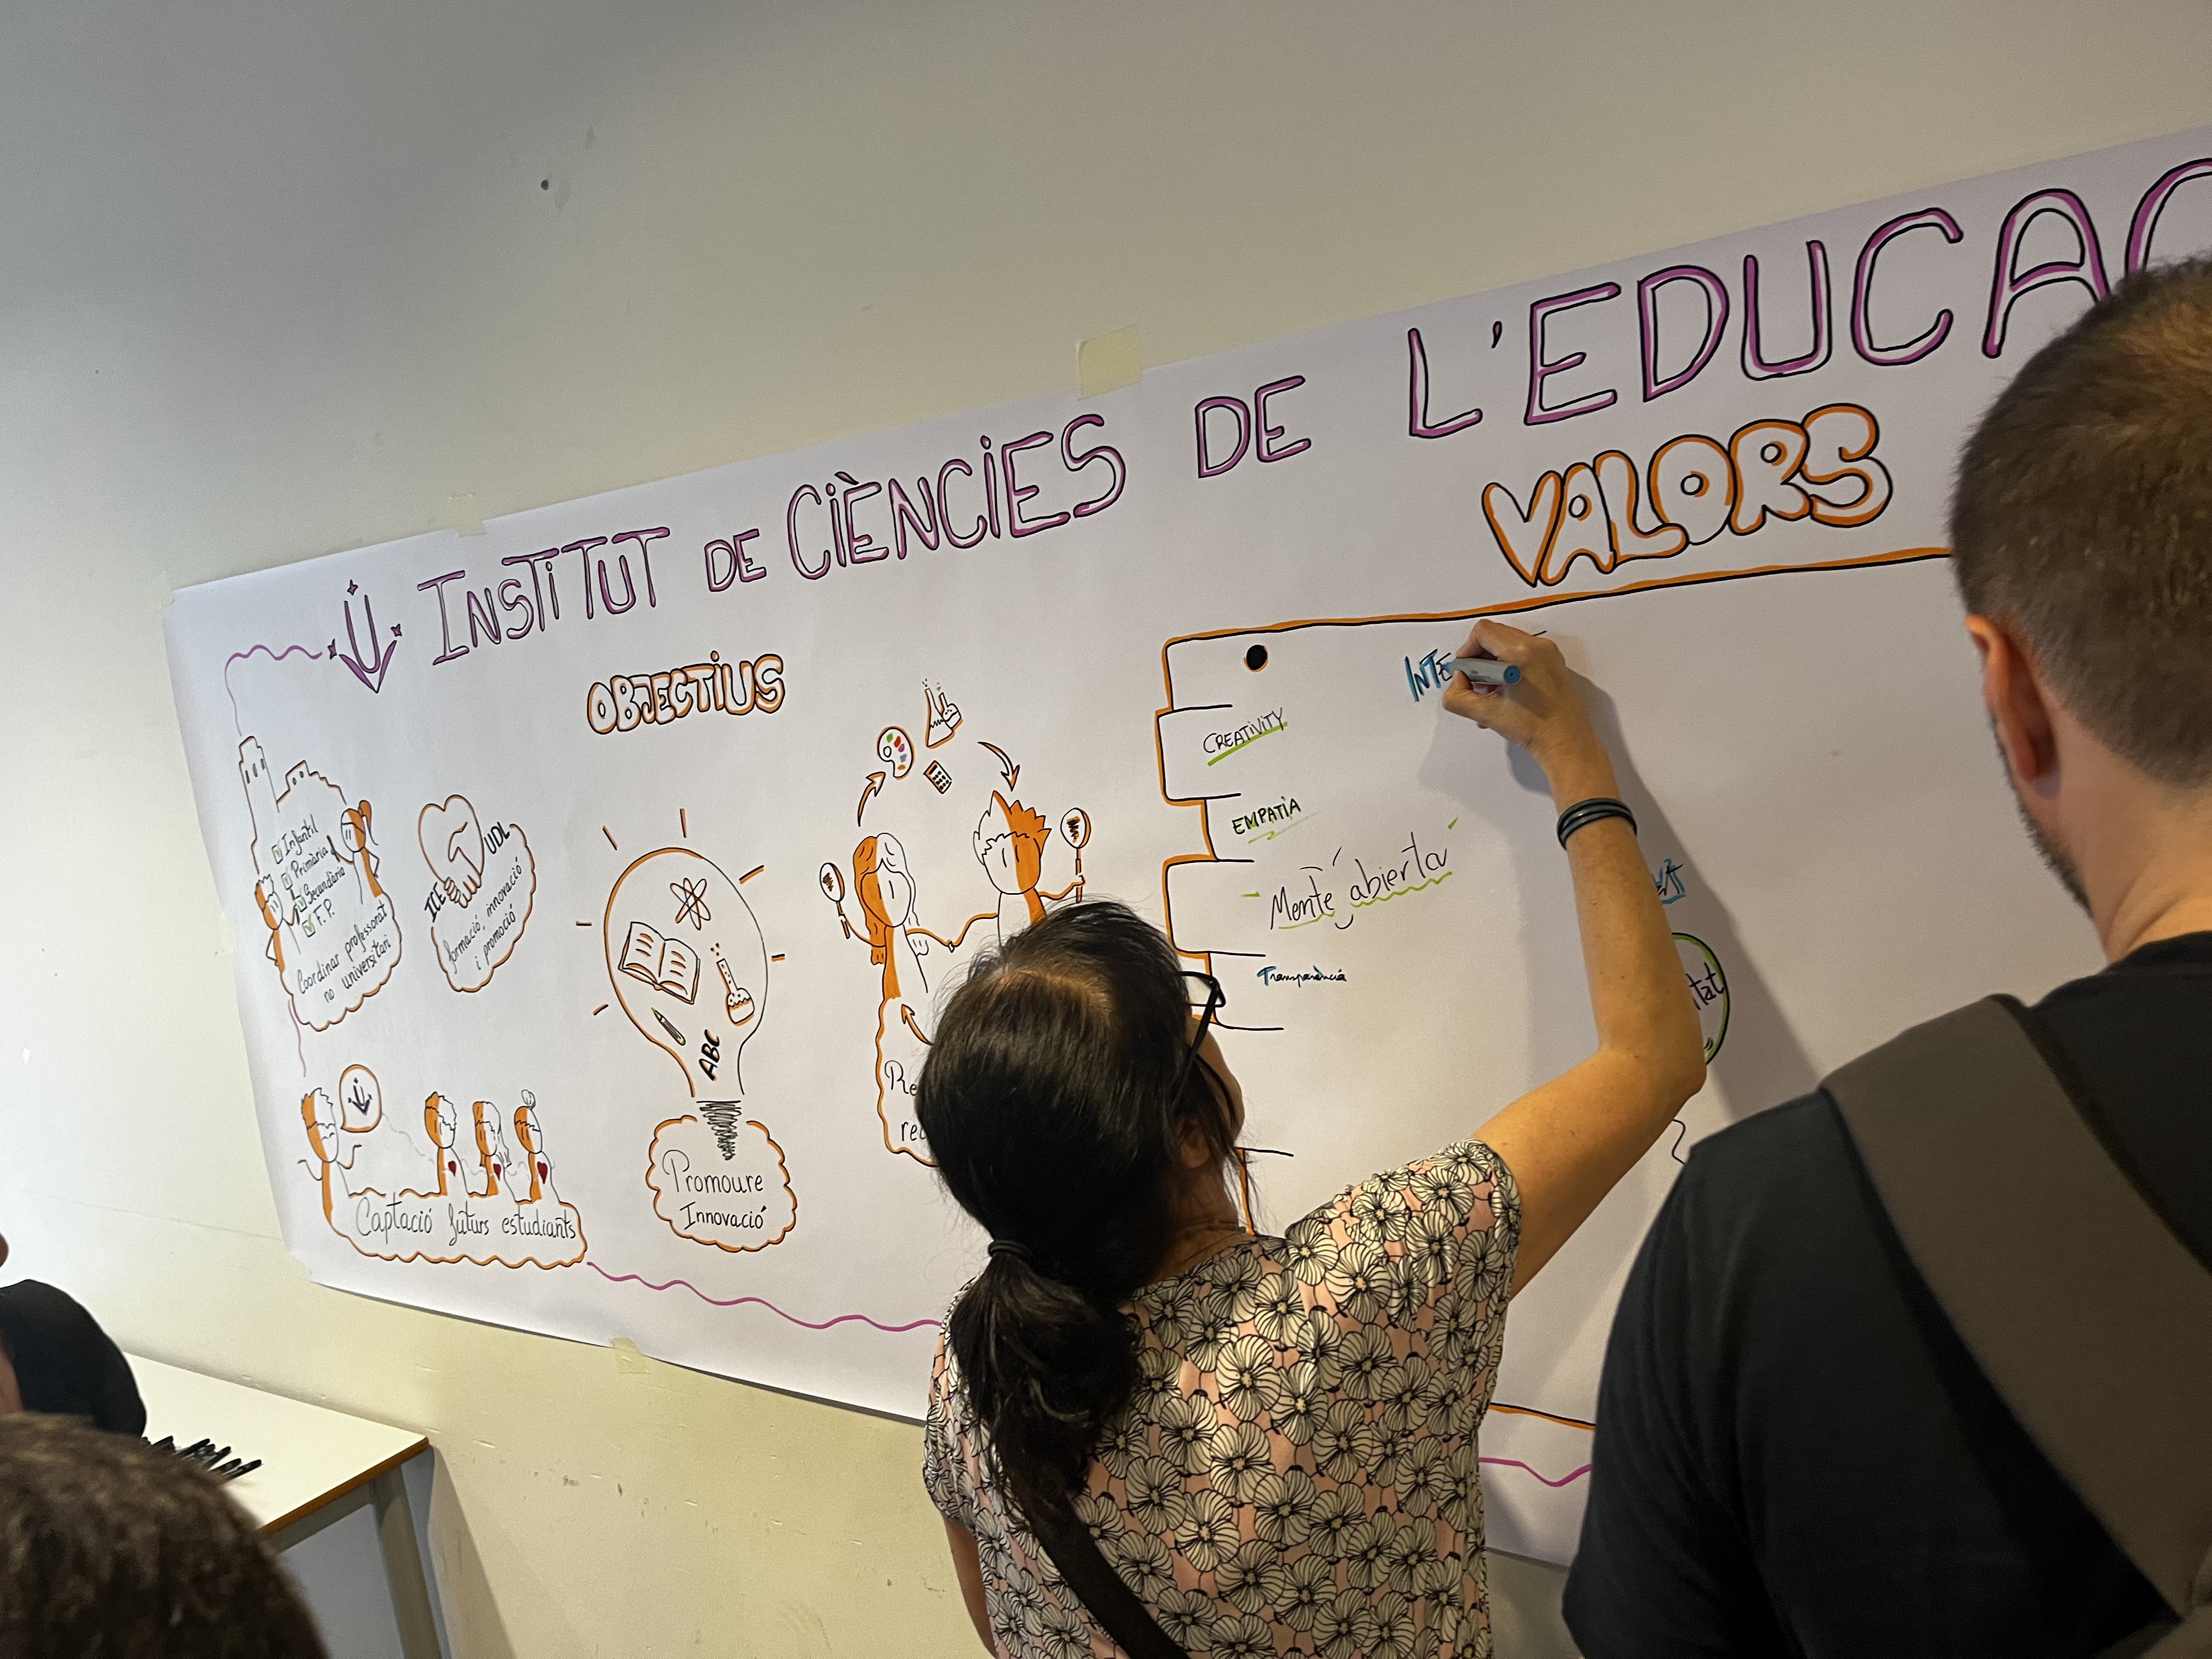 INSTITUT DE CIÈNCIES DE L'EDUCAC
OBJECTIUS
Infantil
Primària
Secundària
F.P.
Coordinar professorat
no universitari
ICE
UDL
formació, innovació
i promoció
Captació futurs estudiants
ABC
Promoure
Innovació
Re
rec
VALORS
INTE
CREATIVITY
EMPATIA
Mente abierta
Transparència
tat